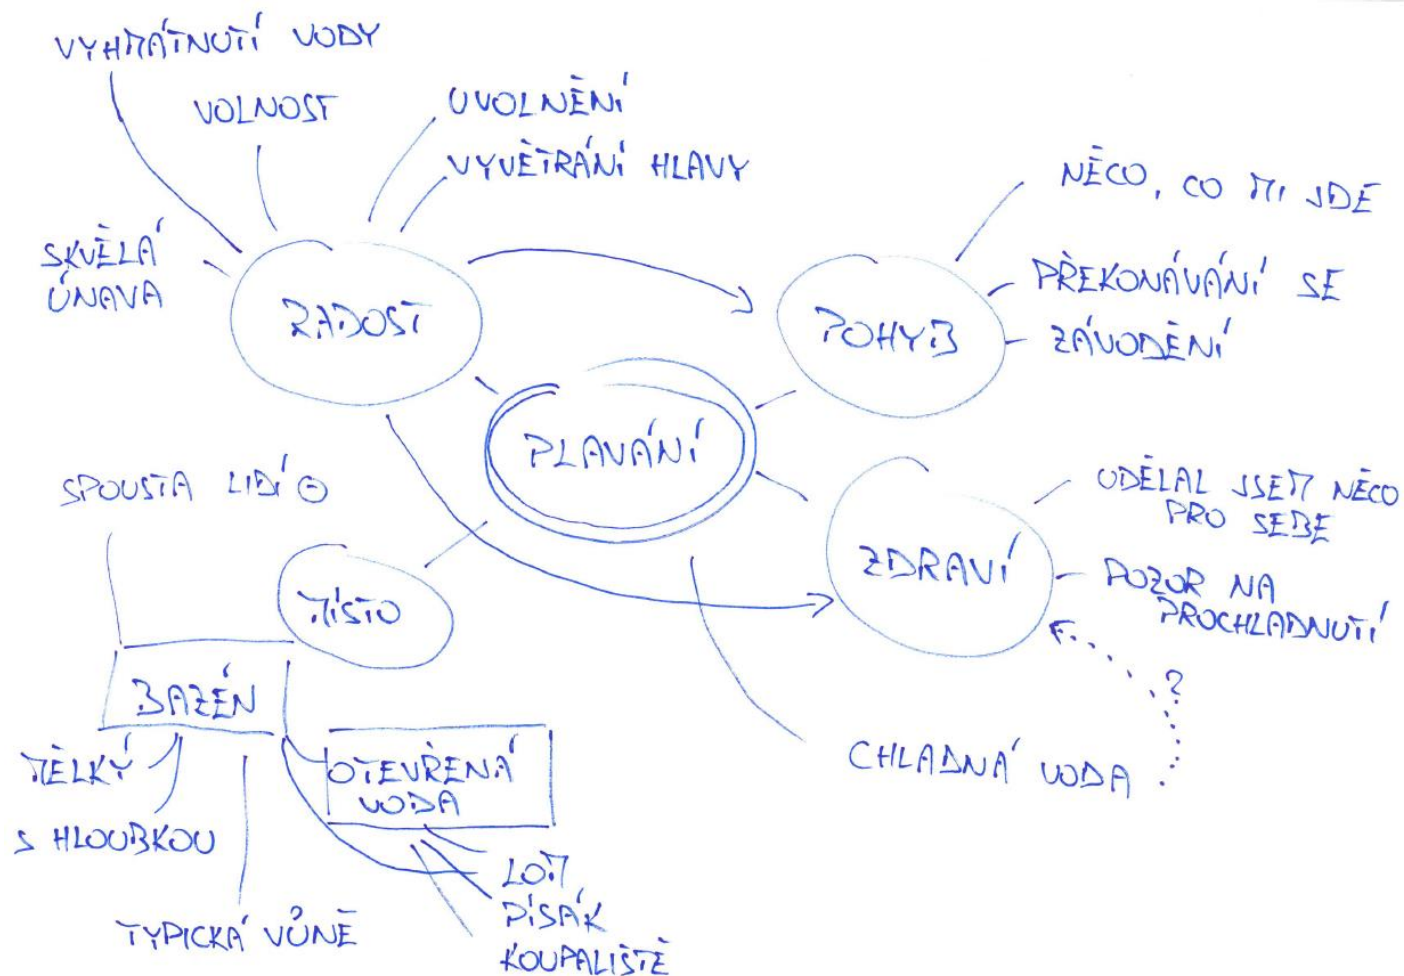 VYHMÁTNUTÍ VODY
VOLNOST
UVOLNĚNÍ
VYVĚTRÁNÍ HLAVY
SKVĚLÁ
ÚNAVA
RADOST
NĚCO, CO MI JDE
PŘEKONÁVÁNÍ SE
ZÁVODĚNÍ
POHYB
PLAVÁNÍ
SPOUSTA LIDÍ
UDĚLAL JSEM NĚCO
PRO SEBE
ZDRAVÍ
POZOR NA
PROCHLADNUTÍ
?
CHLADNÁ VODA
MÍSTO
BAZÉN
MĚLKÝ
S HLOUBKOU
TYPICKÁ VŮNĚ
OTEVŘENÁ
VODA
LOM
PÍSÁK
KOUPALIŠTĚ